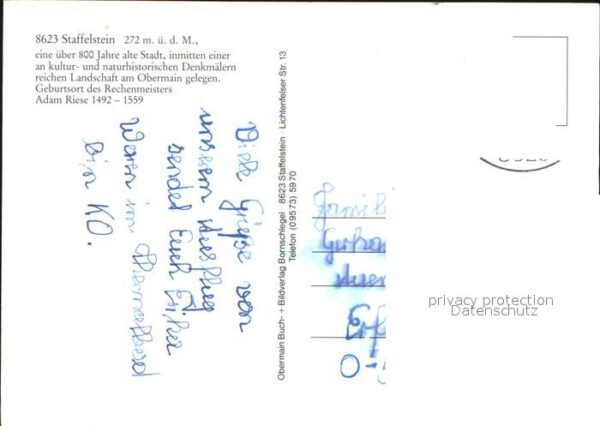 8623 Staffelstein 272 m. ü. d. M.,
eine über 800 Jahre alte Stadt, inmitten einer
an kultur- und naturhistorischen Denkmälern
reichen Landschaft am Obermain gelegen.
Geburtsort des Rechenmeisters
Adam Riese 1492 – 1559
Viele Grüße von
unserem Ausflug
sendet Euch
Waren im Thermalbad
bin KO.
Obermain Buch- + Bildverlag Bornschlegel · 8623 Staffelstein · Lichtenfelser Str. 13
Telefon (09573) 5970
Famil
privacy protection
Datenschutz